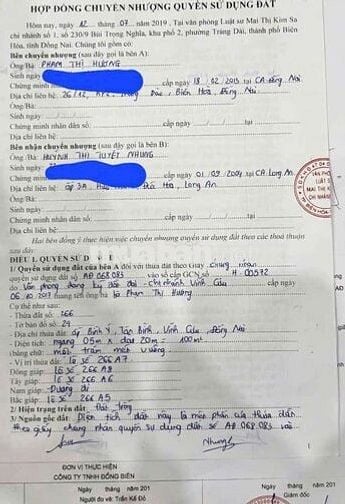 HỢP ĐỒNG CHUYỂN NHƯỢNG QUYỀN SỬ DỤNG ĐẤT
Hôm nay, ngày 12 tháng 07 năm 2019. Tại văn phòng Luật sư Mai Thị Kim Sa
chi nhánh số 1, số 230/9 Bùi Trọng Nghĩa, khu phố 2, phường Trảng Dài, thành phố Biên
Hòa, tỉnh Đồng Nai. Chúng tôi gồm có:
Bên chuyển nhượng (sau đây gọi là bên A):
Ông/Bà: PHẠM THỊ HƯƠNG
Sinh ngày
Chứng minh cấp ngày 13/02/2013 tại CA Đồng Nai
Địa chỉ liên hệ: 26/12, Biên Hòa, Đồng Nai
Ông/Bà:
Sinh ngày
Chứng minh nhân dân số: cấp ngày / / tại
Địa chỉ liên hệ:
Bên nhận chuyển nhượng (sau đây gọi là bên B):
Ông/Bà: HUỲNH THỊ TUYẾT NHUNG
Sinh ngày
Chứng minh cấp ngày 01/09/2004 tại CA Long An
Địa chỉ liên hệ: ấp 3A, Hòa, Long An
Ông/Bà:
Sinh ngày
Chứng minh nhân dân số: cấp ngày / / tại
Địa chỉ liên hệ:
Hai bên đồng ý thực hiện việc chuyển nhượng quyền sử dụng đất theo các thoả thuận
sau đây:
ĐIỀU 1. QUYỀN SỬ D
1/ Quyền sử dụng đất của bên A đối với thửa đất theo Giấy chứng nhận
quyền sử dụng đất số AĐ 068 083 vào sổ cấp GCN số H 00572
do Văn phòng đăng ký đất đai - chi nhánh Vĩnh Cửu cấp ngày
06/10/2017 mang tên ông bà Phạm Thị Hương
Cụ thể như sau:
- Thửa đất số: 266
- Tờ bản đồ số: 24
- Địa chỉ thửa đất: ấp Bình Ý, Tân Bình, Vĩnh Cửu, Đồng Nai
- Diện tích: ngang 05m x dài 20m = 100m²
(bằng chữ: một trăm mét vuông)
- Vị trí thửa đất: lô số 266 A7
Đông giáp: lô số 266 A8
Tây giáp: lô số 266 A6
Nam giáp: Đường đi
Bắc giáp: lô số 266 A5
2/ Hiện trạng trên đất: Đất trống
3/ Nguồn gốc đất: Diện tích đất này là một phần của thửa đất
theo giấy chứng nhận quyền sử dụng đất số AĐ 068 083 vào
Nhung
ĐƠN VỊ THỰC HIỆN
CÔNG TY TNHH ĐỒNG BIÊN
Ngày tháng năm 201
Người đo vẽ: Trần Kế Đô
Ngày tháng năm 201
Giám đốc